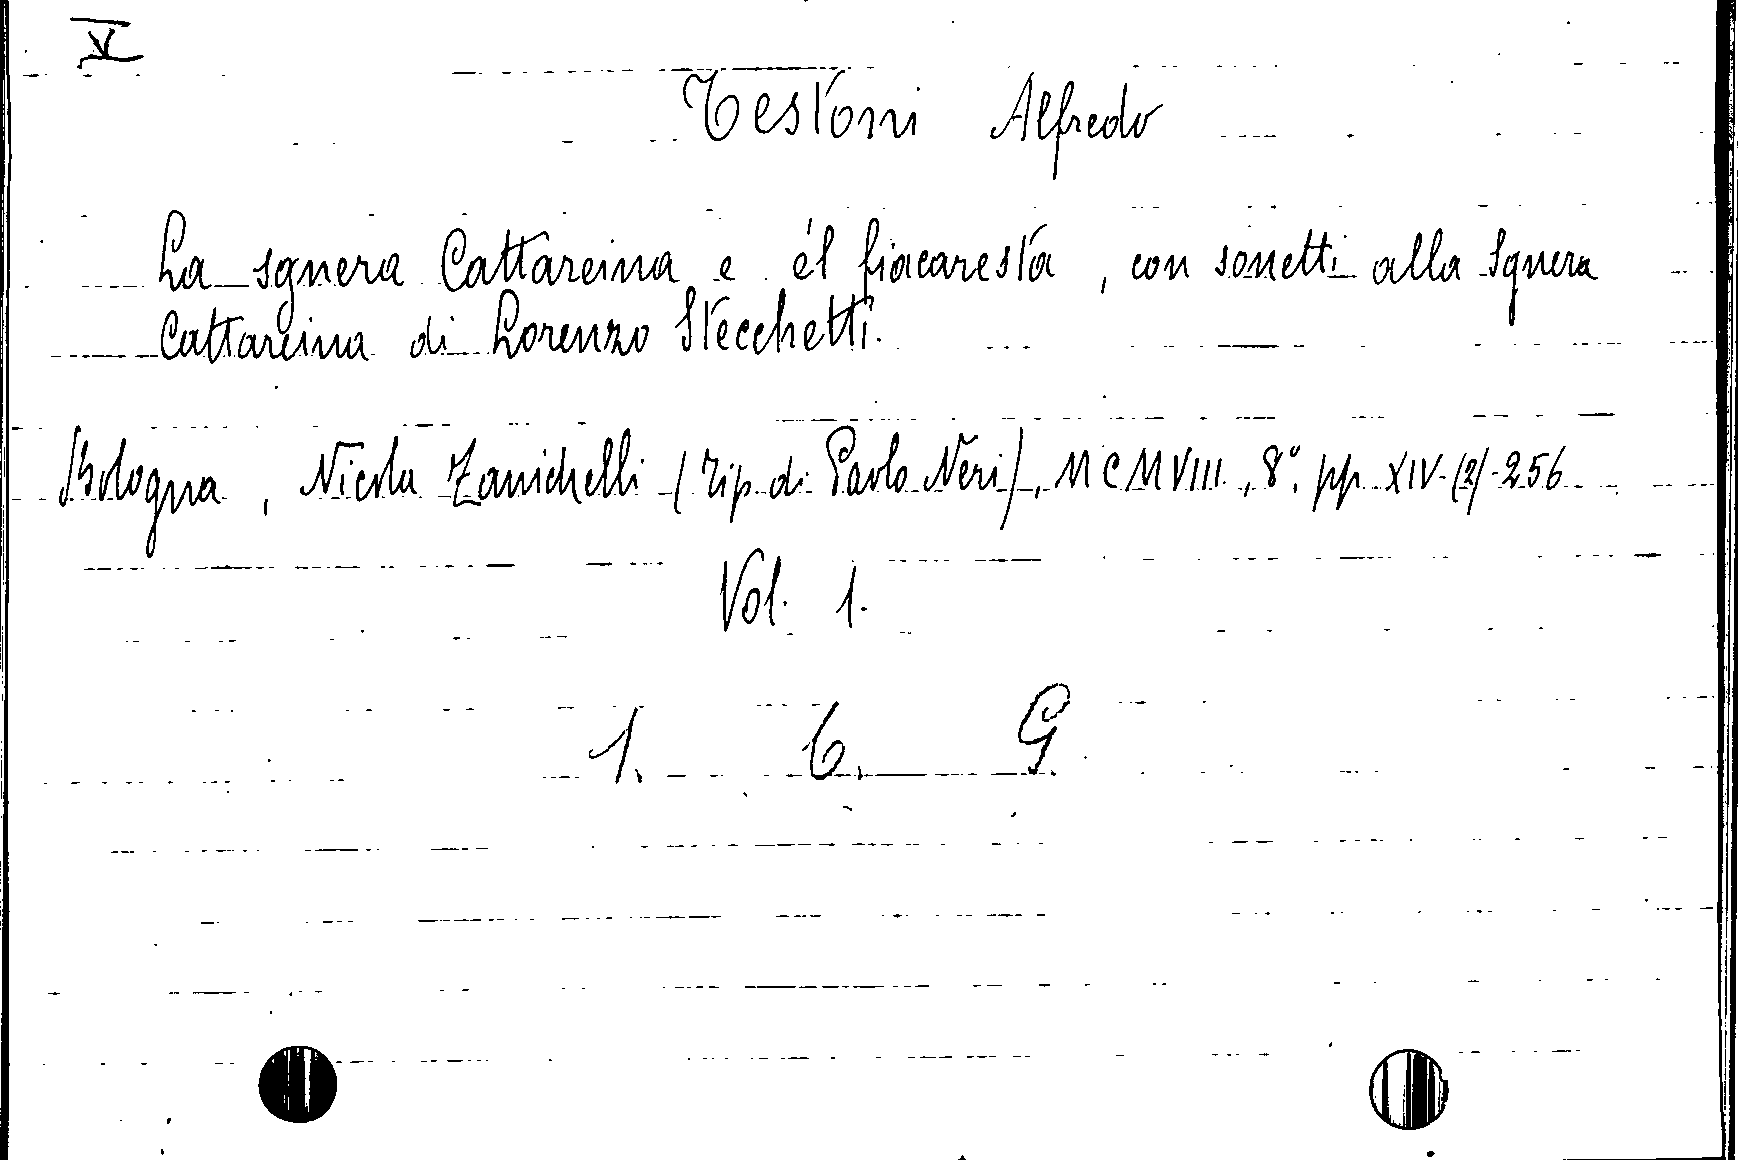 V
Testoni Alfredo
La sgnera Cattareina e él fiacaresta, con sonetti alla Sgnera
Cattareina di Lorenzo Stecchetti.
Bologna, Nicola Zanichelli (Tip. di Paolo Neri), MCMVIII, 8°, pp. XIV-(2)-256
Vol. 1.
1. C. G.